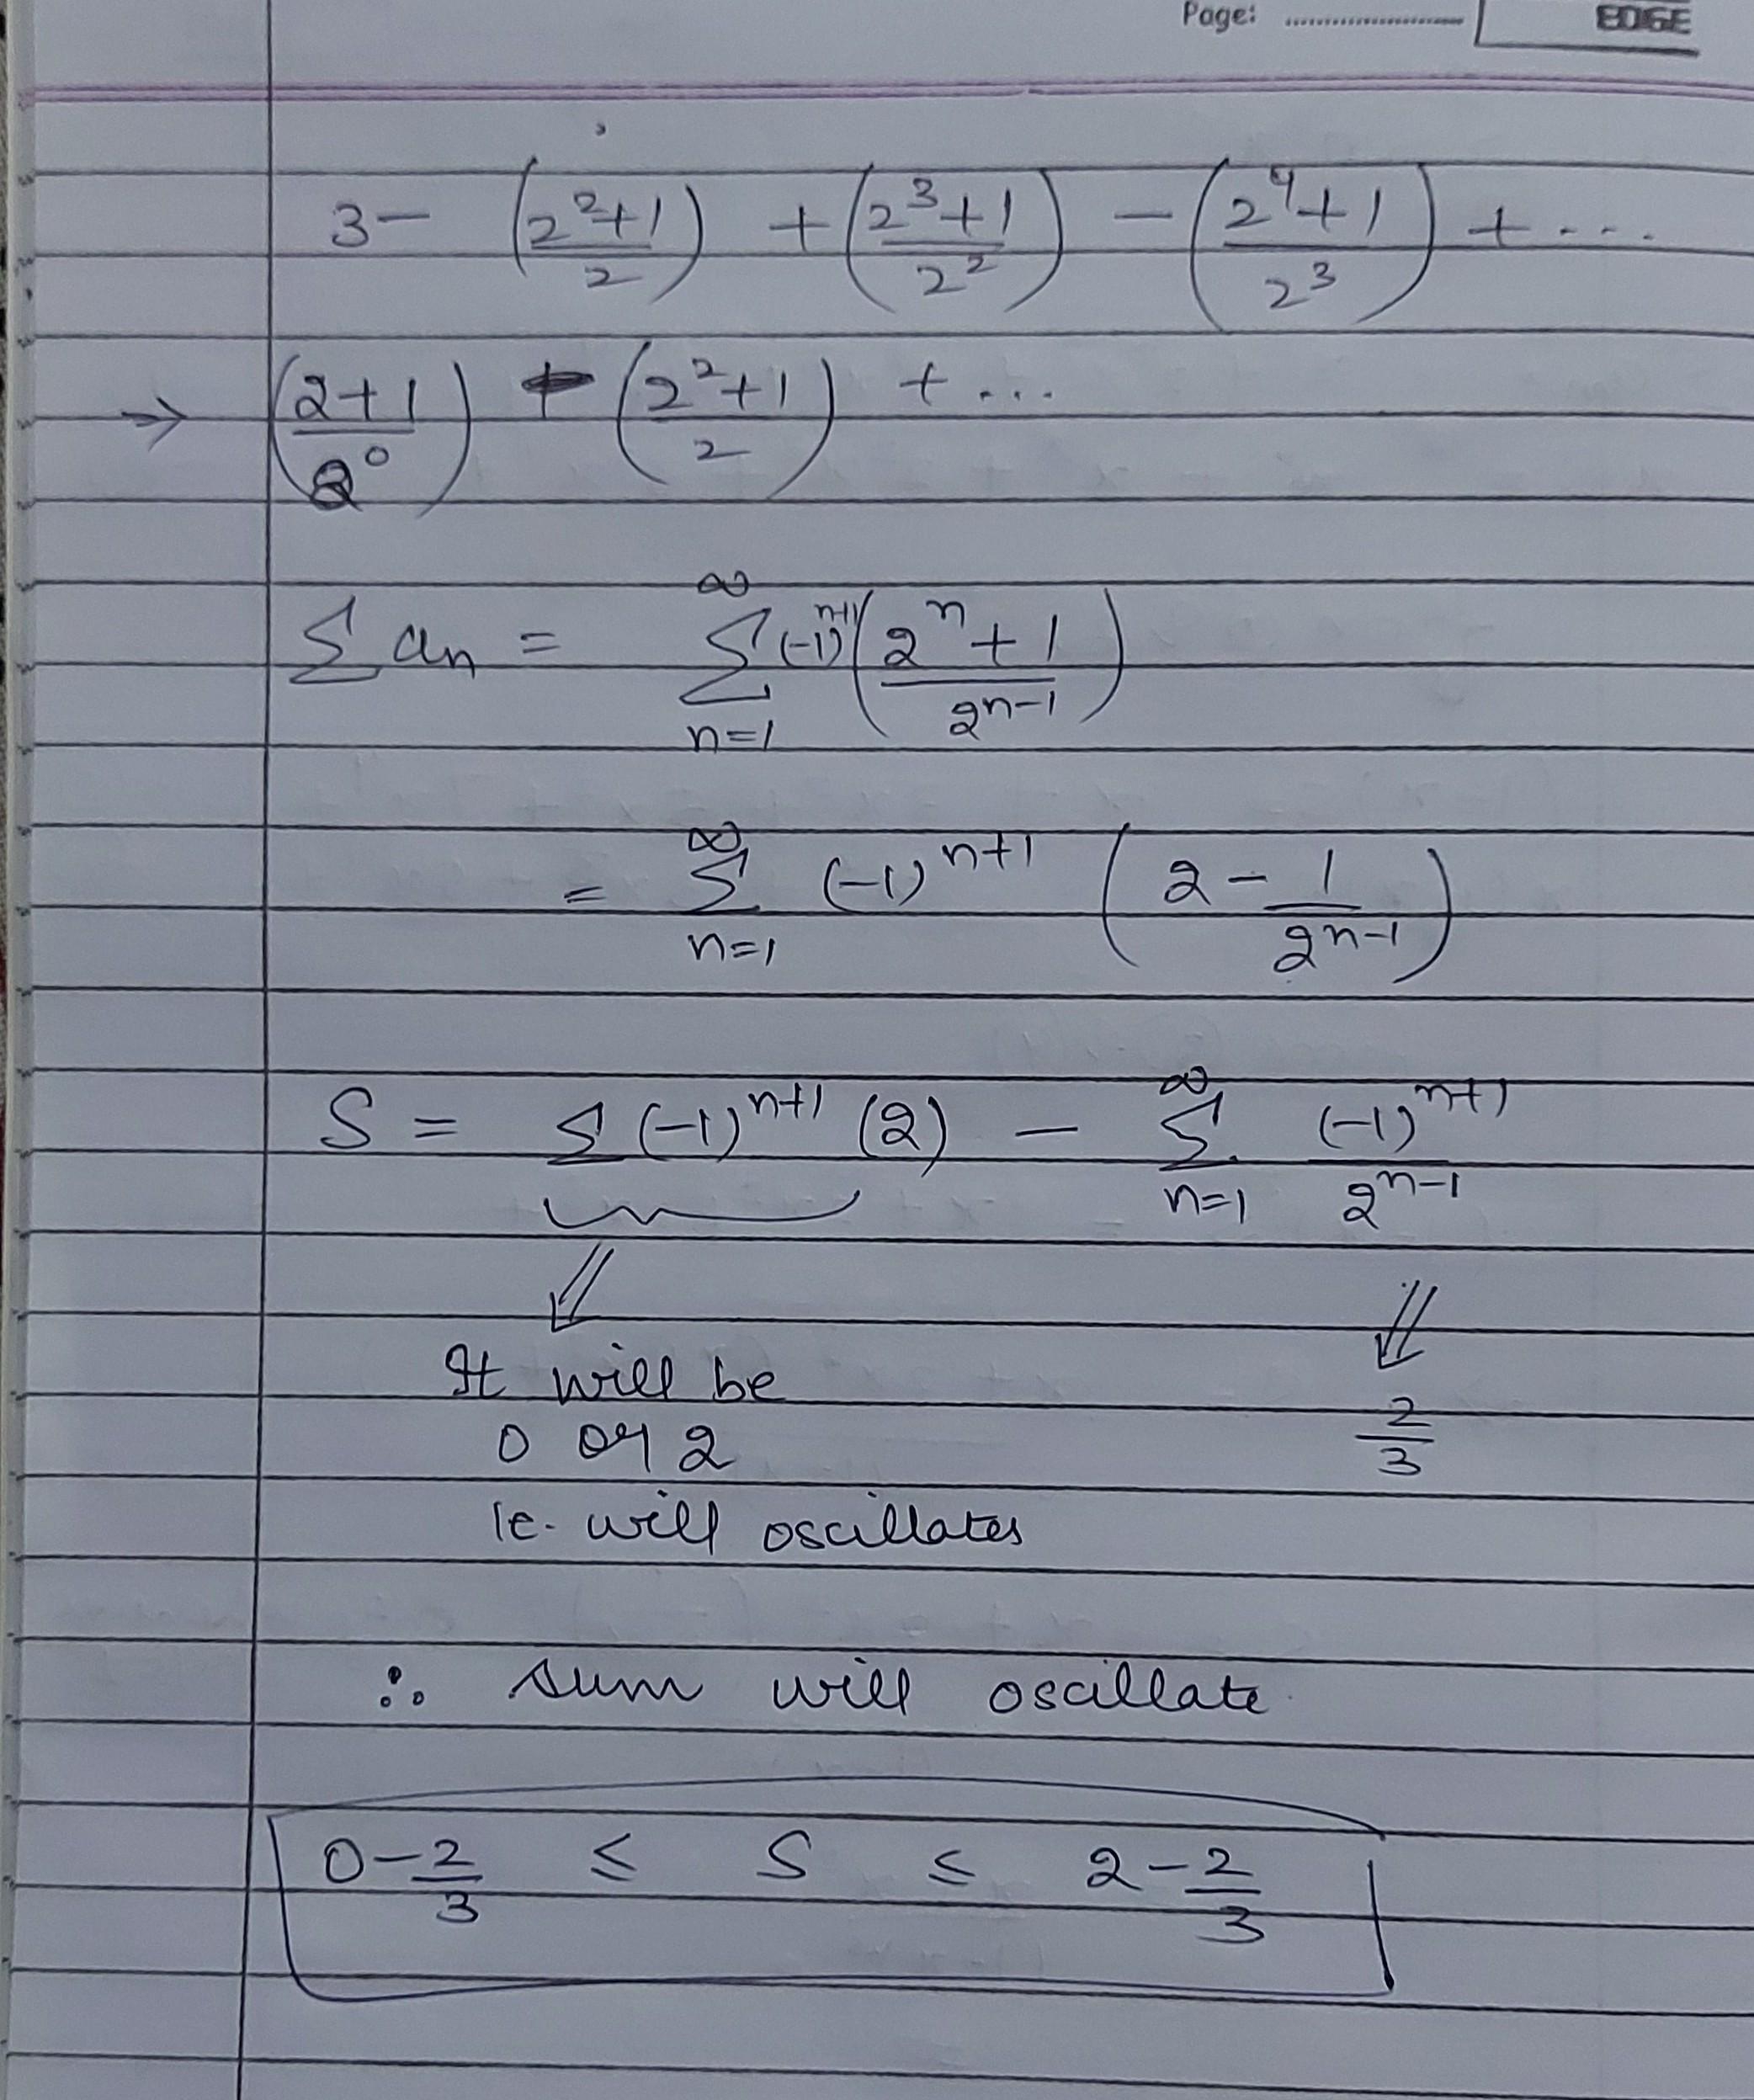 Page: ....................
EDGE
3 - (2^2+1 / 2) + (2^3+1 / 2^2) - (2^4+1 / 2^3) + ...
⇒ (2+1 / 2^0) - (2^2+1 / 2) + ...
Σ an = ∞ Σ n=1 (-1)^n+1 (2^n + 1 / 2^n-1)
= ∞ Σ n=1 (-1)^n+1 (2 - 1 / 2^n-1)
S = Σ (-1)^n+1 (2) - ∞ Σ n=1 (-1)^n+1 / 2^n-1
It will be
0 or 2
2/3
ie. will oscillates
∴ sum will oscillate
0 - 2/3 ≤ S ≤ 2 - 2/3